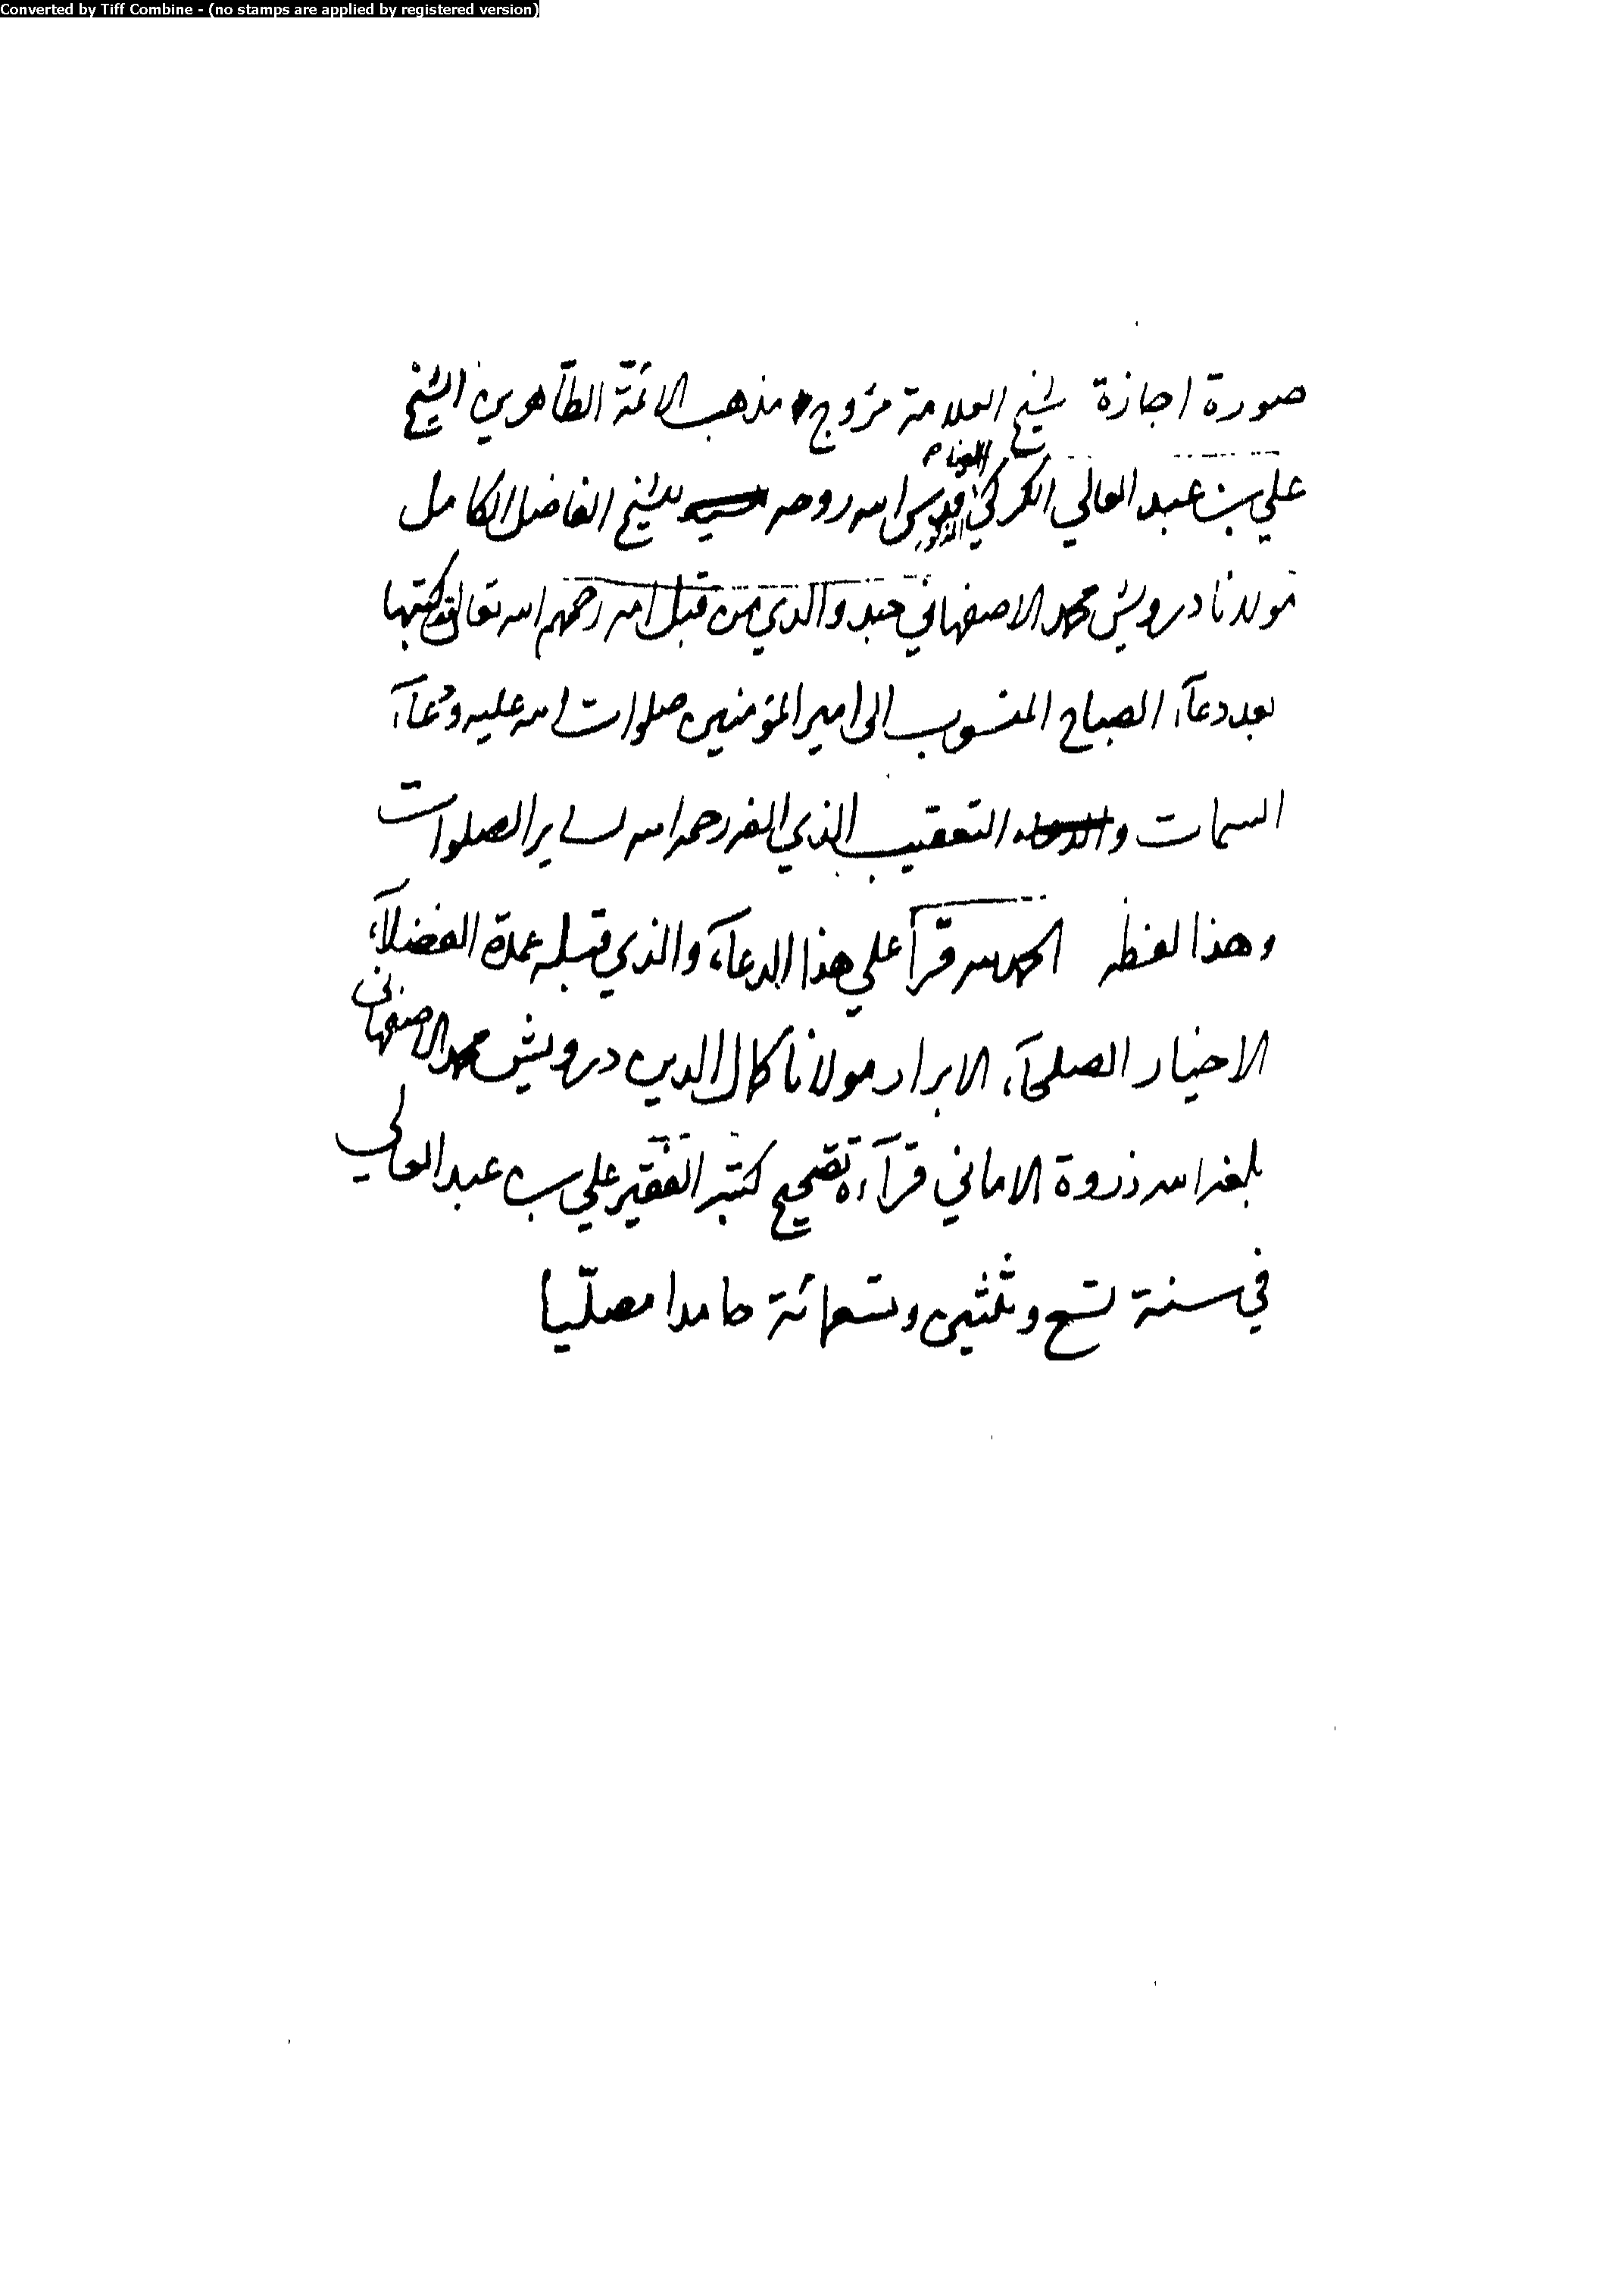 Converted by Tiff Combine - (no stamps are applied by registered version)
صورة اجازة لشيخ العلامة مروج مذهب الائمة الطاهرين الشيخ
علي بن عبد العالي الكركي قدس الله روحه للشيخ الفاضل الكامل
مولانا درويش محمد الاصفهاني جد والدي من قبل امه رحمهم الله تعالى كتبها
بعد دعاء الصباح المنسوب الى امير المؤمنين صلوات الله عليه ودعاء
السمات و التعقيب الذي الفه رحمه الله لساير الصلوات
وهذا لفظه الحمد لله قرأ علي هذا الدعاء والذي قبله عمدة الفضلاء
الاخيار الصلحاء الابرار مولانا كمال الدين درويش محمد الاصفهاني
بلغه الله ذروة الاماني قراءة تصحيح كتبه الفقير علي بن عبد العالي
في سنة تسع وثلثين وتسعمائة حامدا مصليا